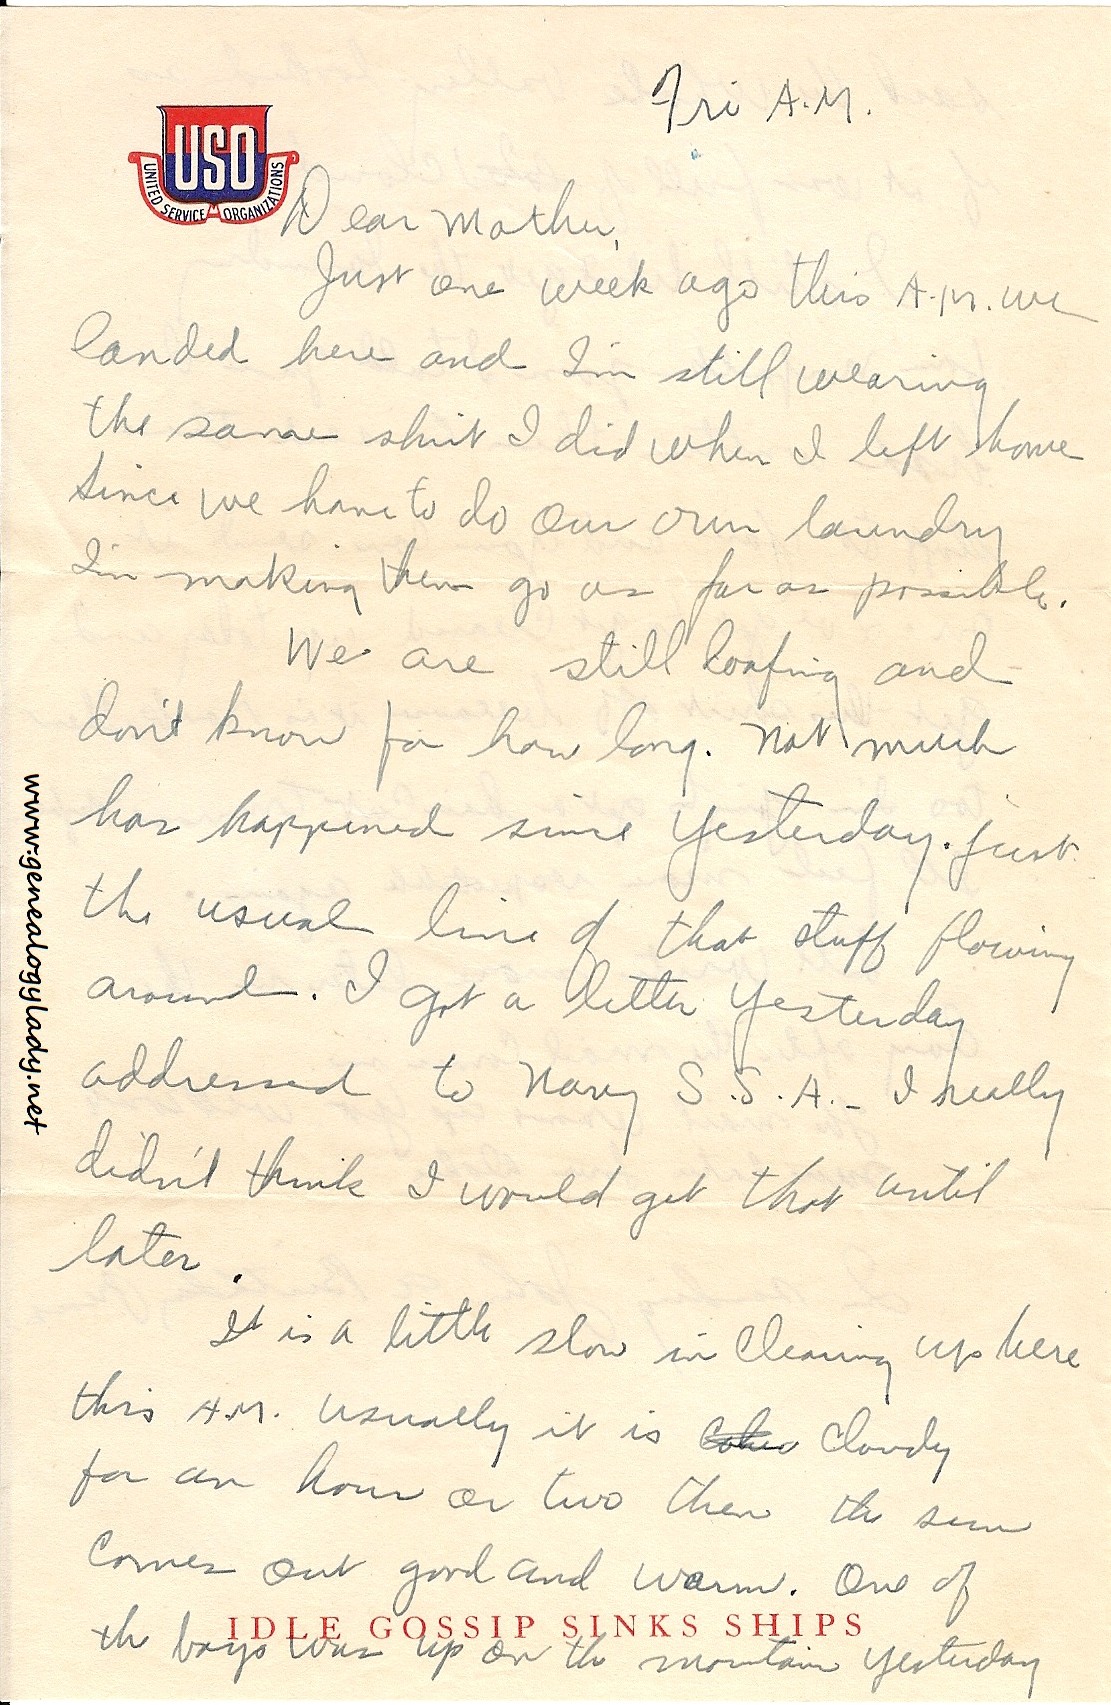 Fri A.M.
USO
UNITED SERVICE ORGANIZATIONS
Dear Mother,
Just one week ago this A.M. we
landed here and I'm still wearing
the same shirt I did when I left home
Since we have to do our own laundry
I'm making them go as far as possible.
We are still loafing and
don't know for how long. Not much
has happened since yesterday. just
the usual line of that stuff flowing
around. I got a letter yesterday
addressed to Navy S.S.A. - I really
didn't think I would get that until
later.
It is a little slow in clearing up here
this A.M. usually it is cloudy
for an hour or two then the sun
comes out good and warm. One of
IDLE GOSSIP SINKS SHIPS
the boys was up on the mountain yesterday
www.genealogylady.net